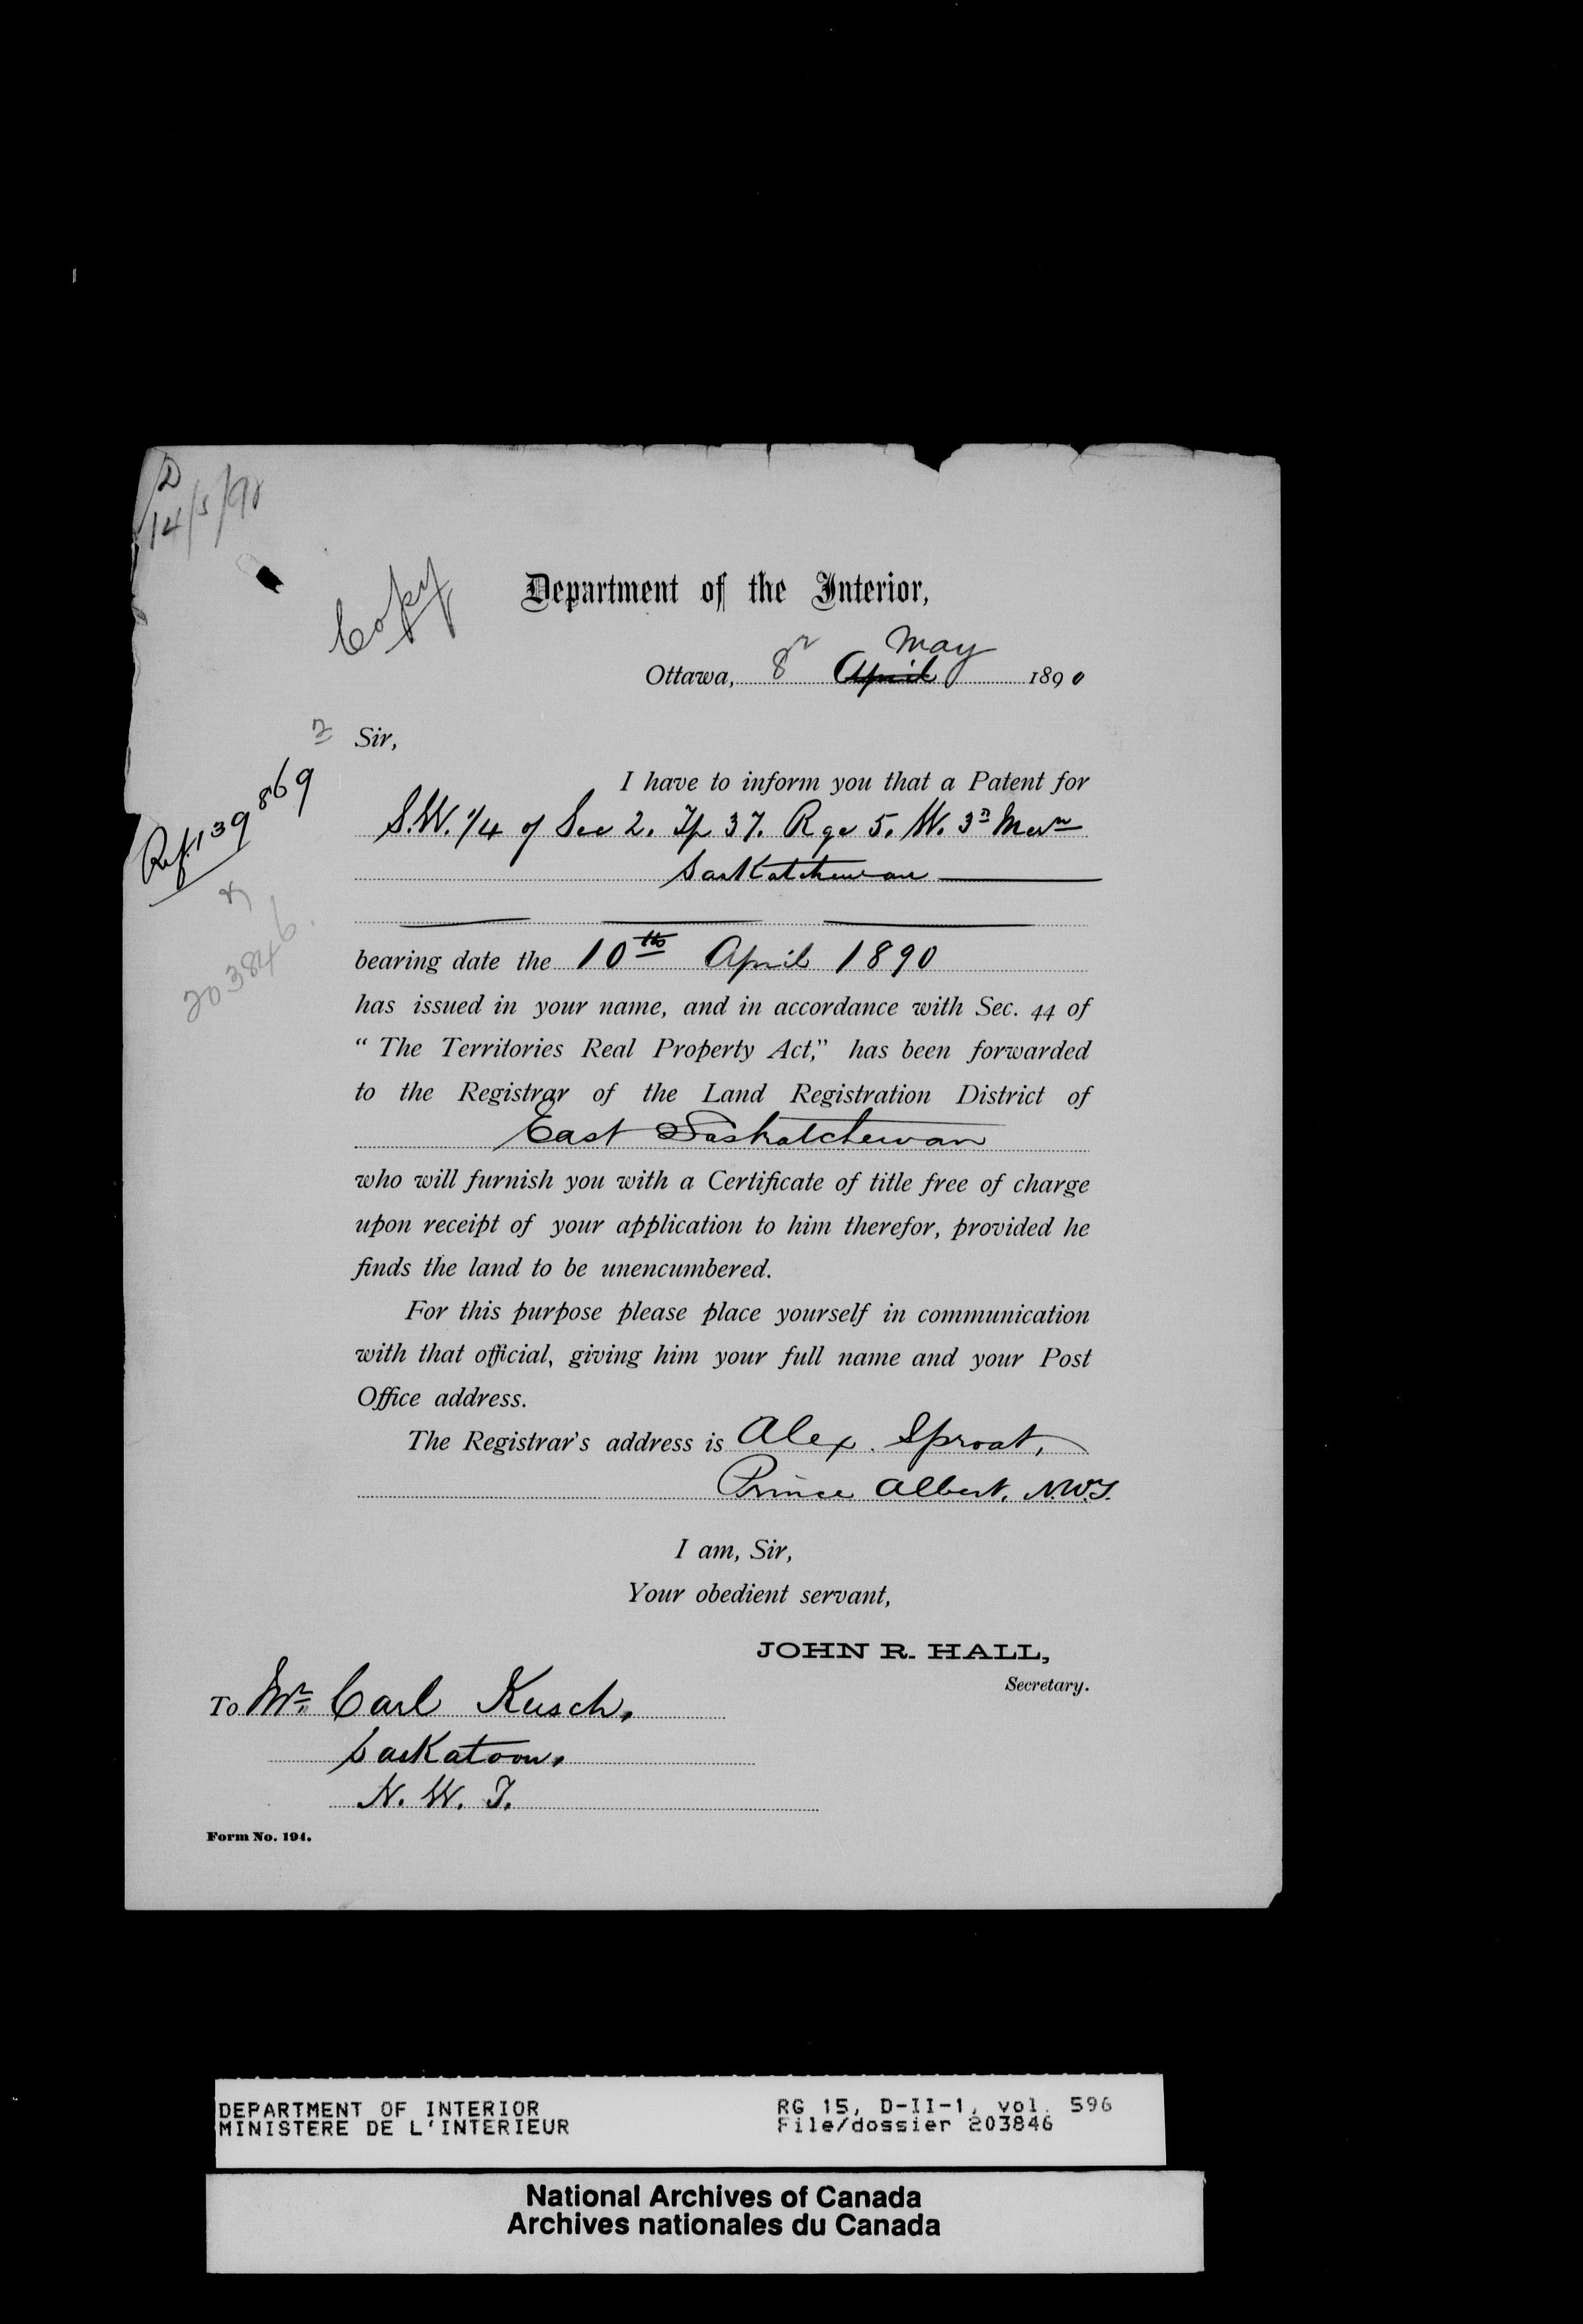 D
14/5/90
Copy
Department of the Interior,
May
Ottawa, 8 April 1890
Sir,
I have to inform you that a Patent for
S.W. 1/4 of Sec 2. Tp 37. Rge 5. W. 3rd Mern
Saskatchewan
Ref. 139869
&
203846.
bearing date the 10th April 1890
has issued in your name, and in accordance with Sec. 44 of
“ The Territories Real Property Act,” has been forwarded
to the Registrar of the Land Registration District of
East Saskatchewan
who will furnish you with a Certificate of title free of charge
upon receipt of your application to him therefor, provided he
finds the land to be unencumbered.
For this purpose please place yourself in communication
with that official, giving him your full name and your Post
Office address.
The Registrar's address is Alex. Sproat,
Prince Albert, N.W.T.
I am, Sir,
Your obedient servant,
JOHN R. HALL,
Secretary.
To Mr. Carl Kusch.
Saskatoon.
N. W. T.
Form No. 194.
DEPARTMENT OF INTERIOR RG 15, D-II-1, vol. 596
MINISTERE DE L'INTERIEUR File/dossier 203846
National Archives of Canada
Archives nationales du Canada